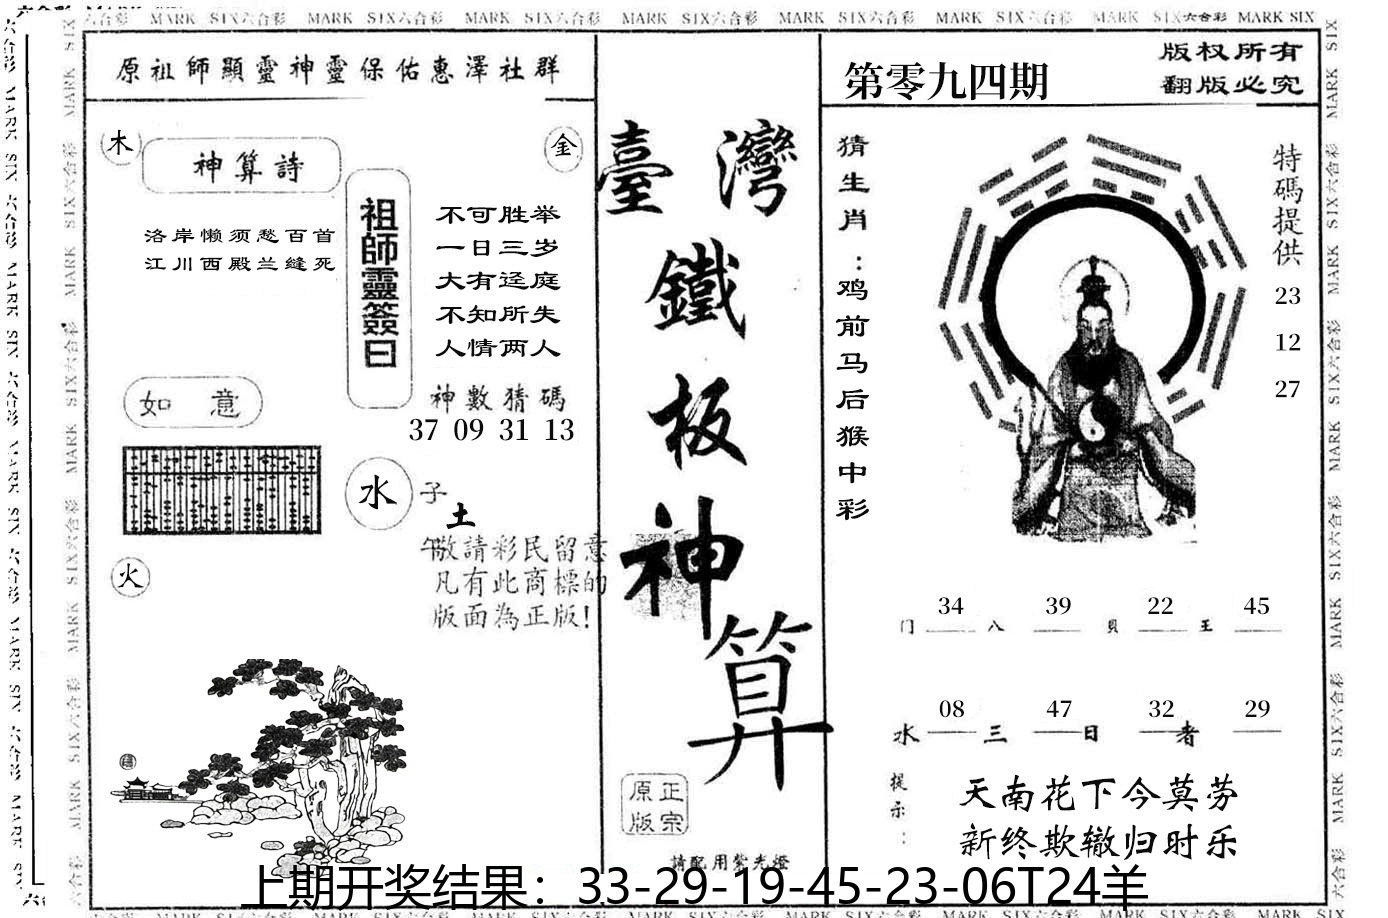 MARK SIX六合彩 MARK SIX六合彩 MARK SIX六合彩 MARK SIX六合彩 MARK SIX六合彩 MARK SIX六合彩 MARK SIX六合彩 MARK SIX
原祖師顯靈神靈保佑惠澤社群
木
金
神算詩
洛岸懒须愁百首
江川西殿兰缝死
祖師靈簽曰
不可胜举
一日三岁
大有迳庭
不知所失
人情两人
神數猜碼
37 09 31 13
如 意
水
子
土
午
火
敬請彩民留意
凡有此商標的
版面為正版!
臺灣
鐵
板
神
算
正宗
原版
請配用紫光燈
第零九四期
版权所有
翻版必究
猜生肖：鸡前马后猴中彩
特碼提供
23
12
27
34 39 22 45
门 八 贝 王
08 47 32 29
水 三 日 者
提示：
天南花下今莫劳
新终欺辙归时乐
上期开奖结果：33-29-19-45-23-06T24羊